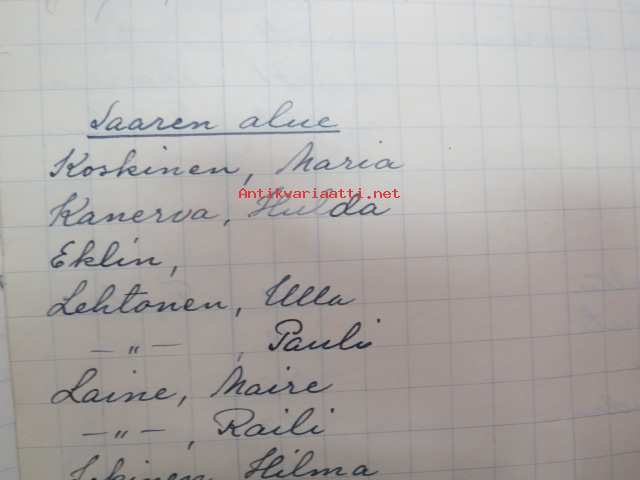 Saaren alue
Koskinen, Maria
Antikvariaatti.net
Kanerva, Hulda
Eklin,
Lehtonen, Ulla
— „ — , Pauli
Laine, Maire
— „ — , Raili
Hilma